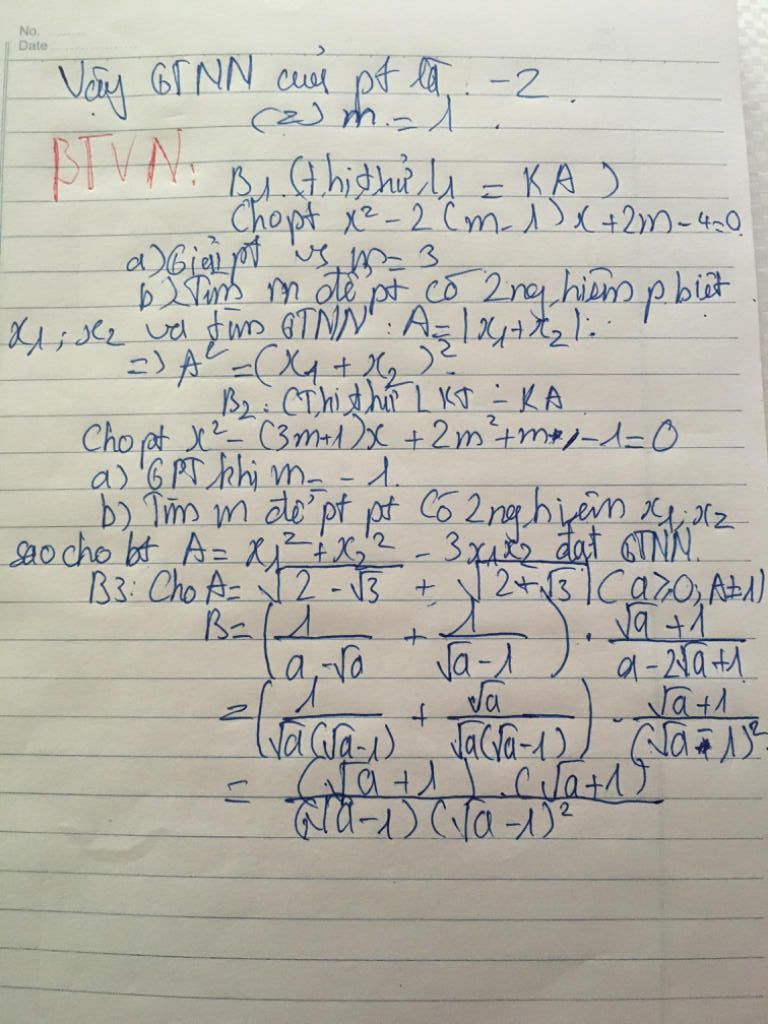 No.
Date
Vậy GTNN của pt là : -2.
(=) m = 1.
BTVN:
B1. (thi thử l1 = KA)
Cho pt x² - 2(m-1)x + 2m - 4=0.
a) Giải pt vs m = 3
b) Tìm m để pt có 2 nghiệm p. biệt
x1 ; x2 và tìm GTNN : A = |x1+x2|.
=) A² = (x1 + x2)².
B2 : (Thi thử L KT - KA
Cho pt x² - (3m+1)x + 2m² + m - 1 = 0
a) GPT khi m = - 1.
b) Tìm m để pt pt có 2 nghiệm x1 ; x2
sao cho bt A = x1² + x2² - 3x1x2 đạt GTNN.
B3: Cho A = √(2 - √3) + √(2 + √3) (a ≥ 0; A ≠ 1)
B = (1/(a - √a) + 1/(√a - 1)) . (√a + 1)/(a - 2√a + 1)
= (1/(√a(√a-1)) + √a/(√a(√a-1))) . (√a+1)/(√a - 1)²
= (√a + 1) . (√a + 1)/(√a - 1)(√a - 1)²